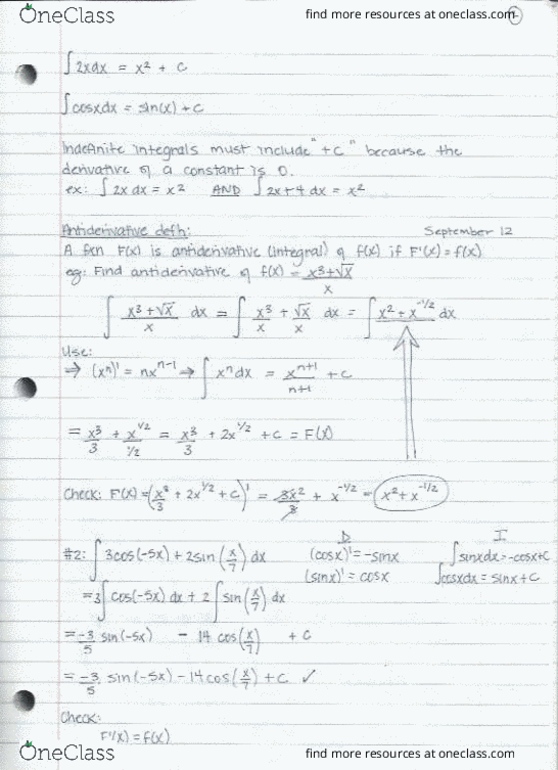 OneClass
find more resources at oneclass.com
∫2xdx = x² + c
∫cosxdx = sin(x) + c
Indefinite integrals must include "+c" because the
derivative of a constant is 0.
ex: ∫2x dx = x² AND ∫2x+4 dx = x²
Antiderivative defn:
September 12
A fxn F(x) is antiderivative (integral) of f(x) if F'(x) = f(x)
eg: Find antiderivative of f(x) = (x³+√x)/x
∫ (x³+√x)/x dx = ∫ x³/x + √x/x dx = ∫ x² + x^(-1/2) dx
Use:
⇒ (xⁿ)' = nx^(n-1) → ∫xⁿdx = x^(n+1)/(n+1) + c
= x³/3 + x^(1/2)/(1/2) = x³/3 + 2x^(1/2) + c = F(x)
Check: F'(x) = (x³/3 + 2x^(1/2) + c)' = 3x²/3 + x^(-1/2) = x² + x^(-1/2)
#2: ∫3cos(-5x) + 2sin(x/7) dx
D
(cosx)' = -sinx
(sinx)' = cosx
I
∫sinxdx = -cosx+c
∫cosxdx = sinx+c
= 3∫cos(-5x) dx + 2∫sin(x/7) dx
= -3/5 sin(-5x) - 14 cos(x/7) + c
= -3/5 sin(-5x) - 14cos(x/7) + c ✓
Check:
F'(x) = f(x)
OneClass
find more resources at oneclass.com